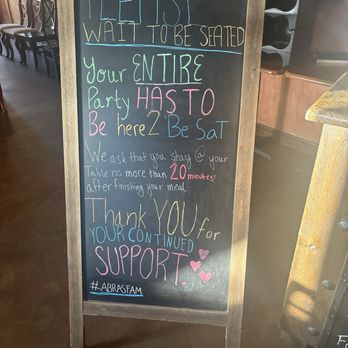 WAIT TO BE SEATED
Your ENTIRE
Party HAS TO
Be here 2 Be SaT
We ask that you stay @ your
Table no more than 20 minutes!
after finishing your meal.
Thank YOU for
YOUR CONTINUED
SUPPORT.
#ABRASFAM